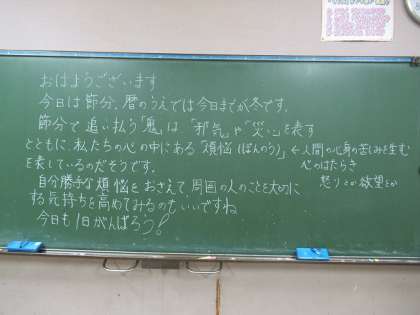 おはようございます
今日は節分、暦のうえでは今日までが冬です。
節分で追い払う「鬼」は「邪気」や「災い」を表す
とともに、私たちの心の中にある「煩悩(ぼんのう)」←人間の心身の苦しみを生む
を表しているのだそうです。 心のはたらき
自分勝手な煩悩をおさえて周囲の人のことを大切に 怒りとか欲望とか
する気持ちを高めてみるのもいいですね
今日も1日がんばろう!